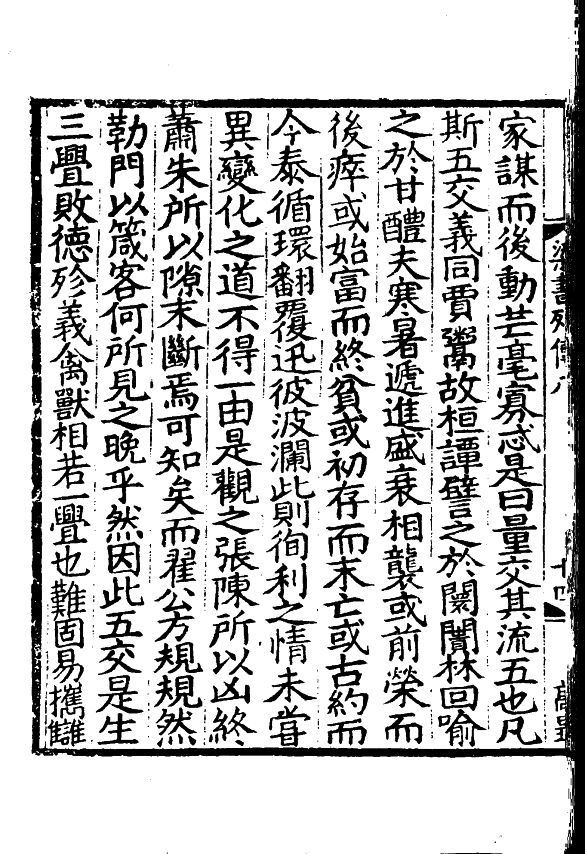 家謀而後動芒毫寡忒是曰量交其流五也凡
斯五交義同賈鬻故桓譚譬之於闤闠林回喻
之於甘醴夫寒暑遞進盛衰相襲或前榮而
後瘁或始富而終貧或初存而末亡或古約而
今泰循環翻覆迅彼波瀾此則徇利之情未嘗
異變化之道不得一由是觀之張陳所以凶終
蕭朱所以隙末斷焉可知矣而翟公方規規然
勒門以箴客何所見之晚乎然因此五交是生
三舋敗德殄義禽獸相若一舋也難固易攜讎